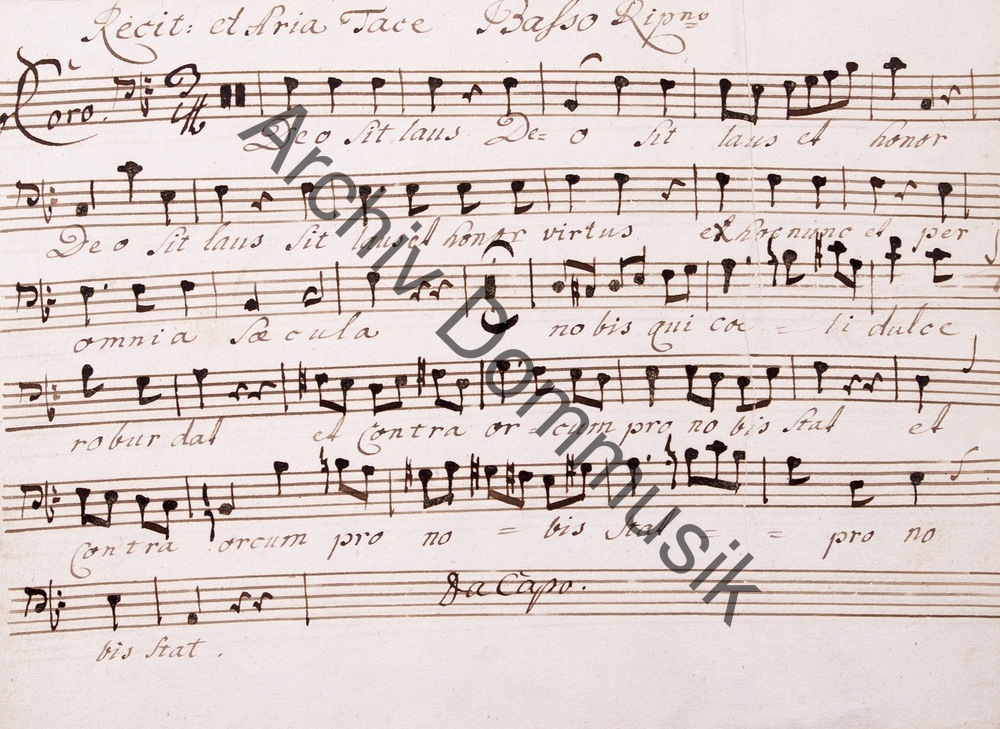 Recit: et Aria Tace Basso Ripno
Coro.
Deo sit laus De= o sit laus et honor
Deo sit laus sit laus et honor virtus et hoc nunc et per
omnia sæcula nobis qui coe = li dulce
robur dat et Contra or = cum pro no bis stat et
Contra orcum pro no = bis stat = = pro no
bis stat .
Da Capo.
Archiv Dommusik